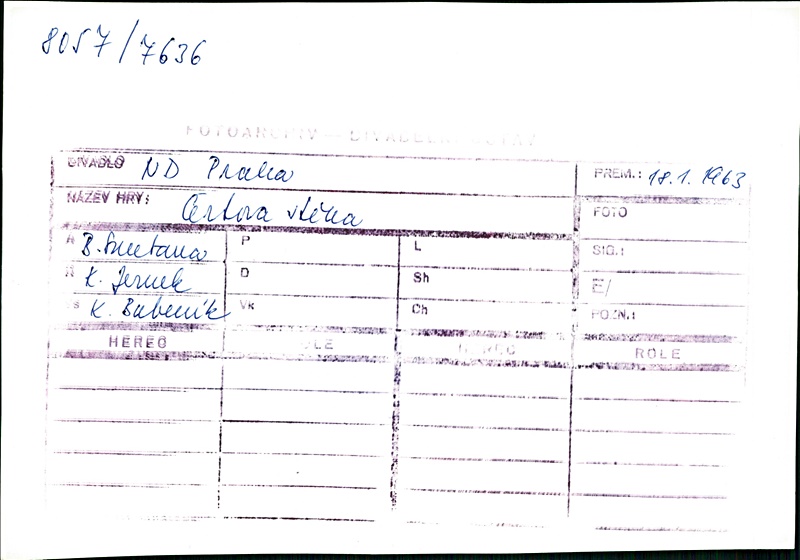 8057/7636
FOTOARCHIV — DIVADELNÍ ÚSTAV
DIVADLO ND Praha PREM.: 18.1.1963
NÁZEV HRY: Čertova stěna FOTO
A B. Smetana P L SIG.:
R K. Jernek D Sh Č/
s K. Bubeník Vk Ch POZN.:
HEREC ROLE HEREC ROLE